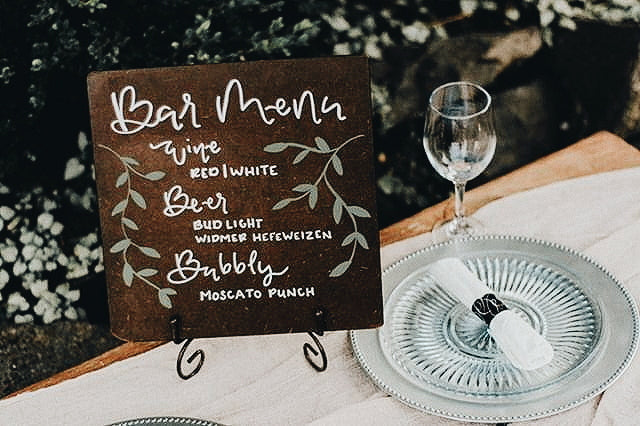 Bar Menu
Wine
RED | WHITE
Beer
BUD LIGHT
WIDMER HEFEWEIZEN
Bubbly
MOSCATO PUNCH